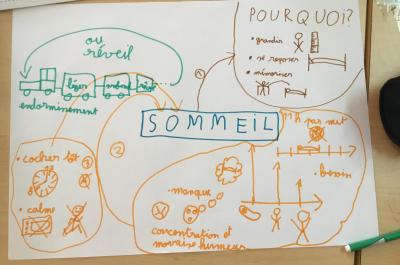 POURQUOI?
• grandir
• se reposer
• mémoriser
ou
réveil
léger
endormissement
1
SOMMEIL
11h par nuit
• coucher tôt 1
2
• calme
• besoin
• manque
concentration et